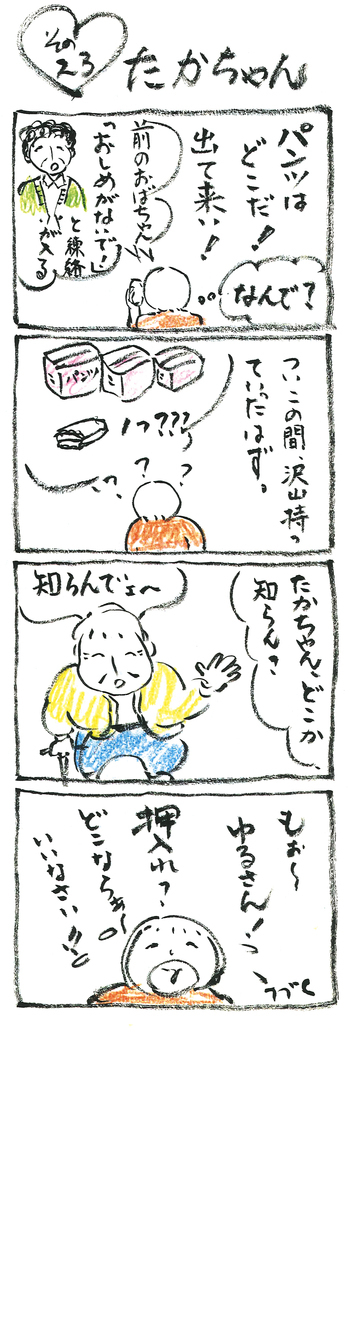 その
えろ
たかちゃん
パンツは
どこだ!
出て来い!
なんで?
前のおばちゃん
「おしめがないで!」
と連絡
が入る
つい、この間、沢山持っ
ていったはず。
パンツ
1つ???
?
?
たかちゃん、どこか、
知らん?
知らんでェ〜
もぉ〜
ゆるさん!
押入れ?
どこならぁ〜
いいなさい!!
つづく